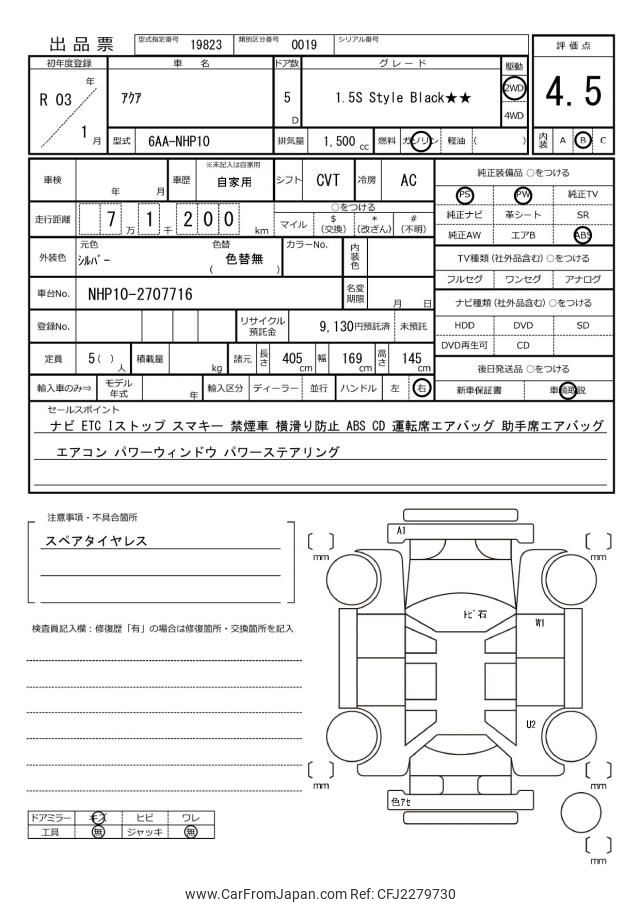 出品票 型式指定番号 19823 類別区分番号 0019 シリアル番号
評価点
4.5
初年度登録 車名 ドア数 グレード 駆動
R 03 年 / 1 月 アクア 5 D 1.5S Style Black★★ 2WD
4WD
型式 6AA-NHP10 排気量 1,500 cc 燃料 ガソリン 軽油 ( ) 内装 A B C
車検 年 月 車歴 ※未記入は自家用 自家用 シフト CVT 冷房 AC
走行距離 7 1 2 0 0 万 千 km
○をつける
マイル $(交換) *(改ざん) #(不明)
外装色 元色 シルバー 色替 ( 色替無 ) カラーNo. 内装色
車台No. NHP10-2707716 名変期限 月 日
登録No. リサイクル預託金 9,130円預託済 未預託
定員 5( ) 人 積載量 kg 諸元 長さ 405 cm 幅 169 cm 高さ 145 cm
輸入車のみ⇒ モデル年式 年 輸入区分 ディーラー 並行 ハンドル 左 右
純正装備品 ○をつける
PS PW 純正TV
純正ナビ 革シート SR
純正AW エアB ABS
TV種類(社外品含む) ○をつける
フルセグ ワンセグ アナログ
ナビ種類(社外品含む) ○をつける
HDD DVD SD
DVD再生可 CD
後日発送品 ○をつける
新車保証書 車輌取説
セールスポイント
ナビ ETC Iストップ スマキー 禁煙車 横滑り防止 ABS CD 運転席エアバッグ 助手席エアバッグ
エアコン パワーウィンドウ パワーステアリング
注意事項・不具合箇所
スペアタイヤレス
検査員記入欄：修復歴「有」の場合は修復箇所・交換箇所を記入
ドアミラー キズ ヒビ ワレ
工具 無 ジャッキ 無
A1
[ ] mm
[ ] mm
トビ石
W1
U2
[ ] mm
[ ] mm
色アセ
[ ] mm
www.CarFromJapan.com Ref: CFJ2279730